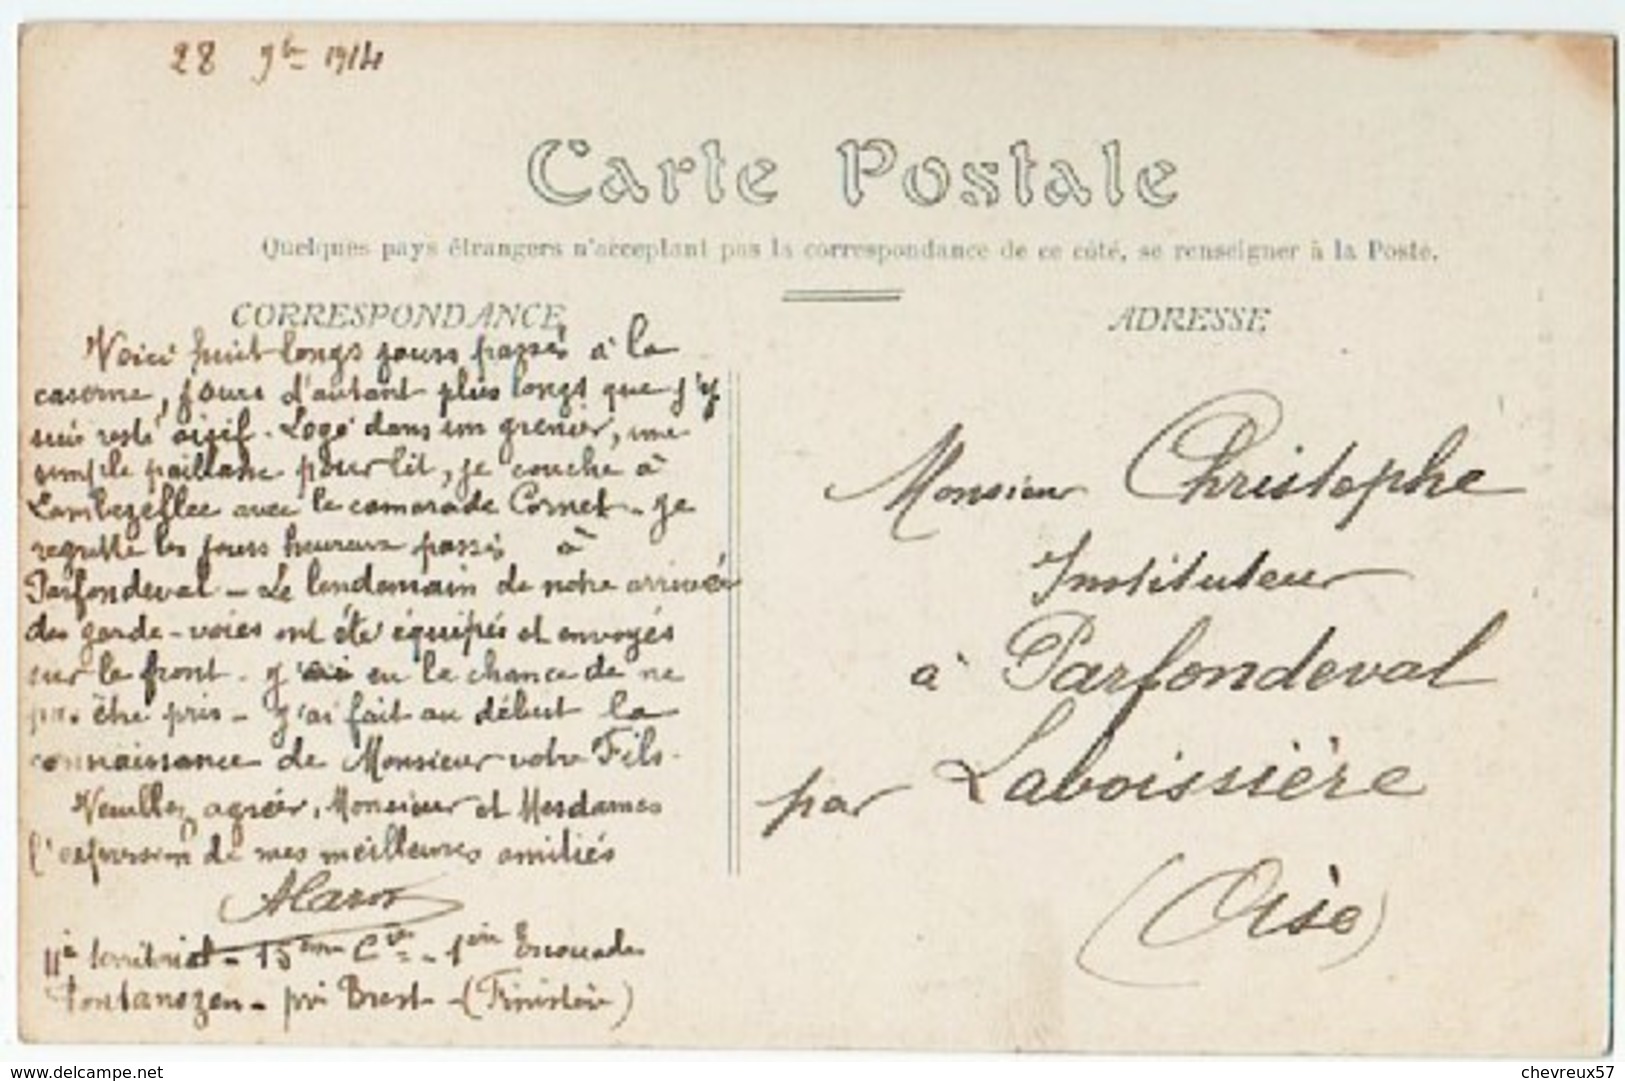 28 9bre 1914
Carte Postale
Quelques pays étrangers n'acceptant pas la correspondance de ce côté, se renseigner à la Poste.
CORRESPONDANCE
ADRESSE
Voici huit longs jours passés à la
caserne, jours d'autant plus longs que j'y
suis resté oisif. Logé dans un grenier, une
simple paillasse pour lit, je couche à
Lambezellec avec le camarade Cornet. Je
regrette les jours heureux passés à
Parfondeval - Le lendemain de notre arrivée
des garde-voies ont été équipés et envoyés
sur le front. J'ai eu la chance de ne
pas être pris - J'ai fait au début la
connaissance de Monsieur votre Fils.
Veuillez agréer, Monsieur et Mesdames
l'expression de mes meilleures amitiés
11e territorial - 15ème Cie - 1ère Escouade
Pontanezen - près Brest - (Finistère)
Monsieur Christophe
Instituteur
à Parfondeval
par Laboissière
(Oise)
www.delcampe.net
chevreux57